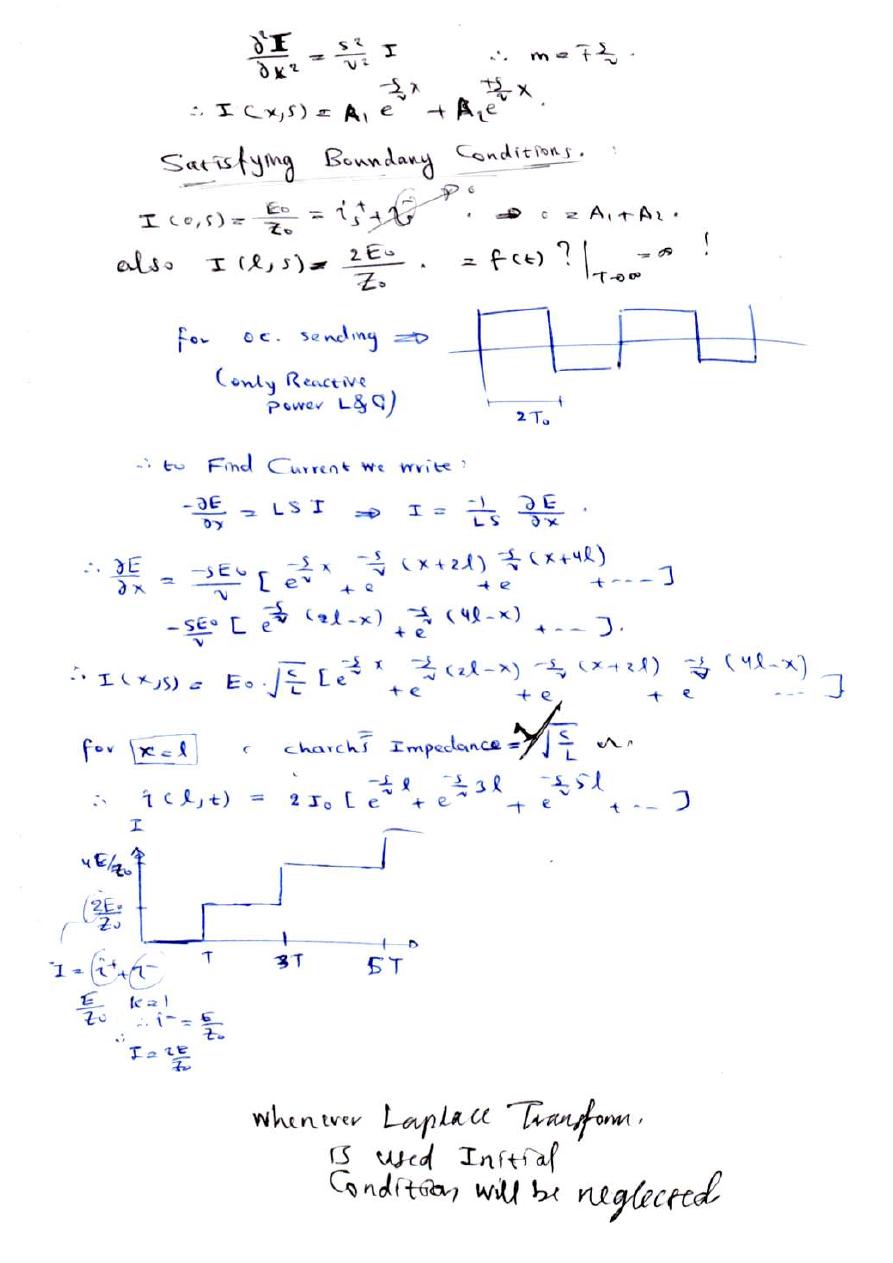 ∂²I/∂x² = s²/v² I ∴ m = ∓ s/v .
∴ I(x,s) = A₁ e^(-s/v x) + A₂ e^(+s/v x) .
Satisfying Boundary Conditions. :
I(0,s) = E₀/Z₀ = i_s⁺ + i⁻ → 0 . ⇒ 0 = A₁ + A₂ .
also I(l,s) = 2E₀/Z₀ . = f(t) ? |_(T→∞) = ∞ !
for o c. sending ⇒
(only Reactive
Power L & C)
2T₀
∴ to Find Current we write :
-∂E/∂x = LS I ⇒ I = -1/LS ∂E/∂x .
∴ ∂E/∂x = -sE₀/v [ e^(-s/v x) + e^(-s/v (x+2l)) + e^(-s/v (x+4l)) + ---- ]
-SE₀/v [ e^(-s/v (2l-x)) + e^(-s/v (4l-x)) + --- ] .
∴ I(x,s) = E₀ . √(C/L) [ e^(-s/v x) + e^(-s/v (2l-x)) + e^(-s/v (x+2l)) + e^(-s/v (4l-x)) ---- ]
for x=l , Impedance = √(C/L)
∴ i(l,t) = 2I₀ [ e^(-s/v l) + e^(-s/v 3l) + e^(-s/v 5l) + --- ]
I
4E/Z₀
2E₀/Z₀
T 3T 5T
I = i⁺ + i⁻
E/Z₀ k=1
∴ i⁻ = E/Z₀
∴ I = 2E/Z₀
whenever Laplace Transform.
is used Initial
Conditions will be neglected